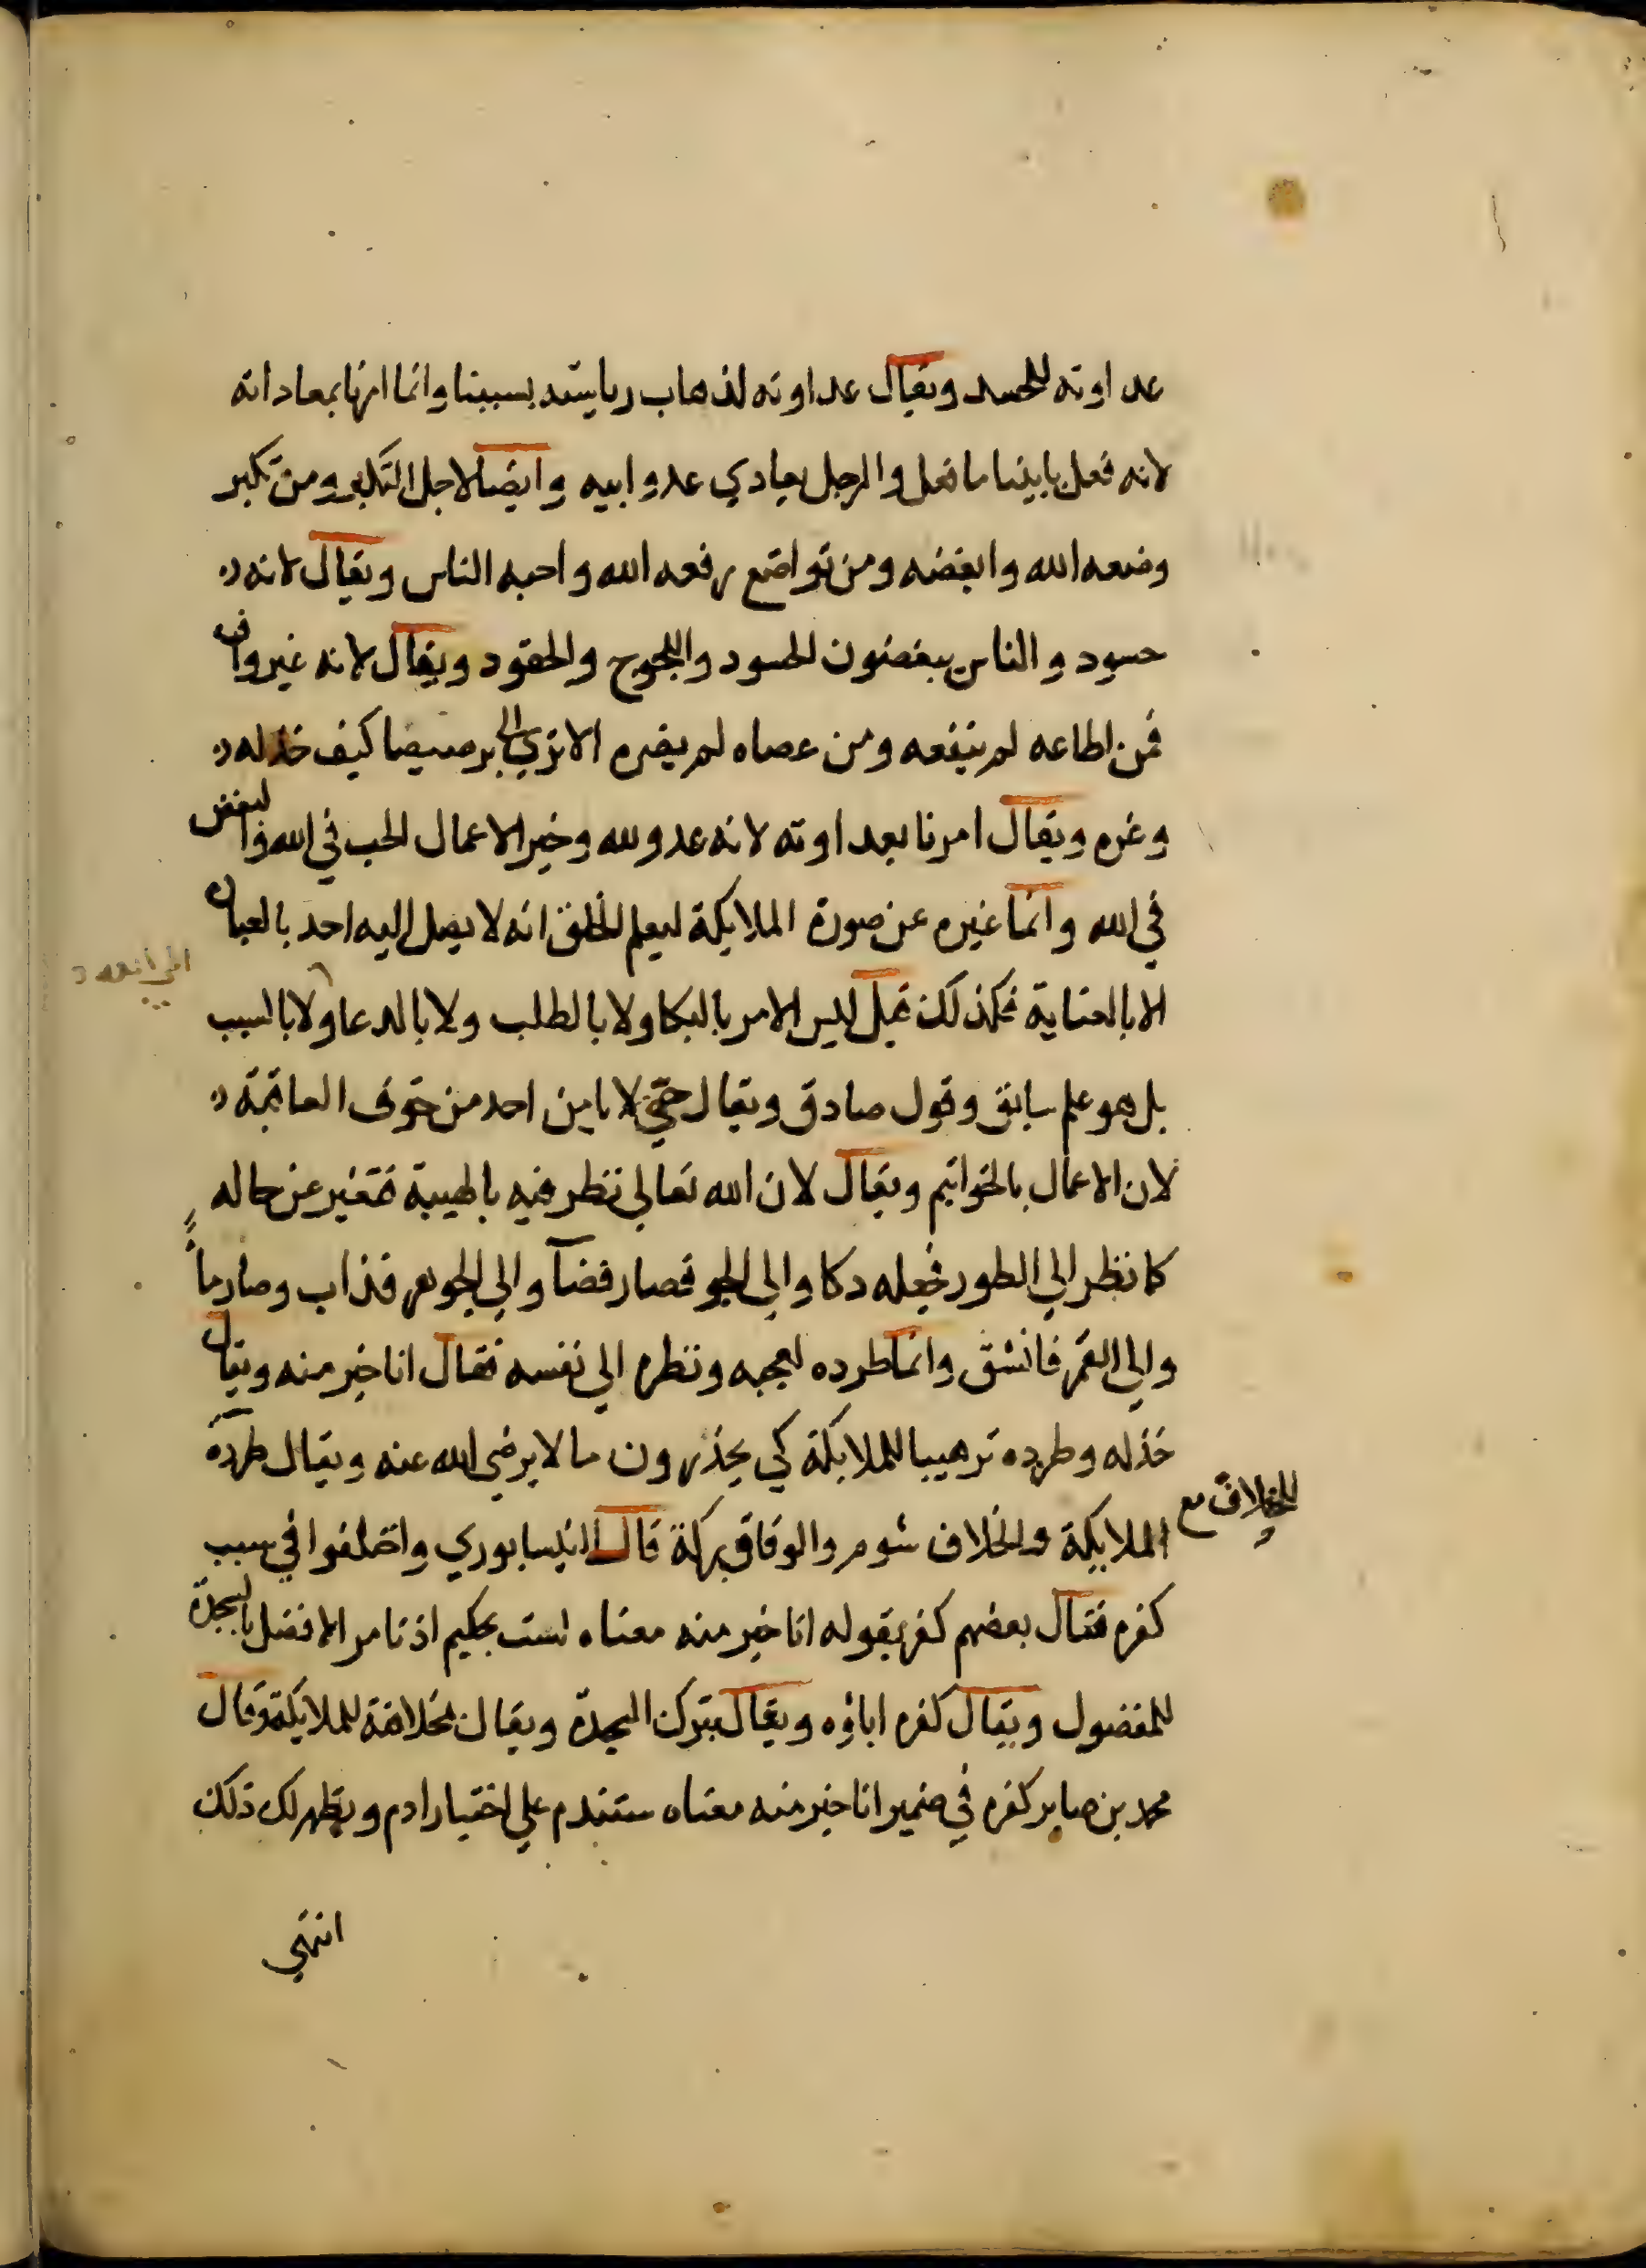 عداوته للحسد ويقال عداوته لذهاب رياسته بسببنا وانما امرنا بمعاداته
لانه فعل بابينا ما فعل والرجل يعادي عدو ابيه وايضا لاجل التكبر ومن تكبر
وضعه الله وابغضه ومن تواضع رفعه الله واحبه الناس ويقال لانه
حسود والناس يبغضون الحسود واللجوج والحقود ويقال لانه غير واف
فمن اطاعه لم ينفعه ومن عصاه لم يضره الا تري الي برصيصا كيف خذله
وغره ويقال امرنا بعداوته لانه عدو لله وخير الاعمال الحب في الله والبغض
في الله وانما غيره عن صورة الملايكة ليعلم الخلق انه لا يصل اليه احد بالعبادة
الا بالعناية فكذلك قيل ليس الامر بالبكا ولا بالطلب ولا بالدعا ولا بالسبب
بل هو علم سابق وقول صادق ويقال حتي لا يامن احد من خوف العاقبة
لان الاعمال بالخواتيم ويقال لان الله تعالي نظر فيه بالهيبة فتغير عن حاله
كما نظر الي الطور فجعله دكا والي الجو فصار فضآ والي الجوهر فذاب وصار مآ
والي القمر فانشق وانما طرده لعجبه ونظره الي نفسه فقال انا خير منه ويقال
خذله وطرده ترهيبا للملايكة كي يحذرون ما لا يرضي الله عنه ويقال طرده
للخلاف مع
الملايكة والخلاف شوم والوفاق بركة قال النيسابوري واختلفوا في سبب
كفره فقال بعضهم كفر بقوله انا خير منه معناه لست بحكيم اذ تامر الافضل بالسجدة
للمفضول ويقال كفره اباؤه ويقال بترك السجدة ويقال لمخلافته للملايكة وقال
محمد بن صابر كفره في ضمير انا خير منه معناه ستندم علي اختيار ادم ويظهر لك ذلك
انتهي